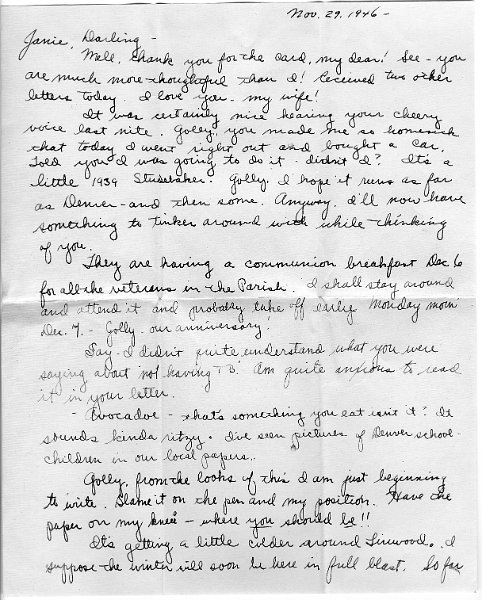 Nov. 29, 1946 -
Janie, Darling -
Well, thank you for the card, my dear! See - you
are much more thoughtful than I! Received two other
letters today. I love you - my wife!
It was certainly nice hearing your cheery
voice last nite. Golly, you made me so homesick
that today I went right out and bought a car.
Told you I was going to do it - didn't I? It's a
little 1939 Studebaker. Golly, I hope it runs as far
as Denver - and then some. Anyway, I'll now have
something to tinker around with while thinking
of you.
They are having a communion breakfast Dec 6
for all the veterans in the Parish. I shall stay around
and attend it and probably take off early Monday morn
Dec. 7. - Golly - our anniversary!
Say - I didn't quite understand what you were
saying about not having TB. Am quite anxious to read
it in your letter.
- Avocadoe - that's something you eat isn't it? It
sounds kinda ritzy. I've seen pictures of Denver school-
children in our local papers.
Golly, from the looks of this I am just beginning
to write. Blame it on the pen and my position. Have the
paper on my knee - where you should be!!
It's getting a little colder around Linwood. I
suppose the winter will soon be here in full blast. So far